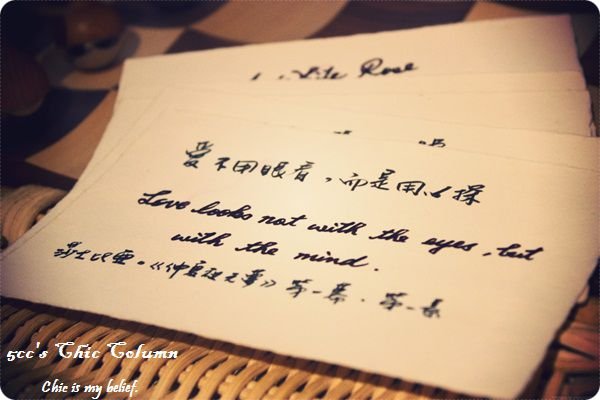 Rose
愛不用眼看，而是用心探
Love looks not with the eyes, but
with the mind.
莎士比亞。《仲夏夜之夢》第一幕．第一景
5cc's Chic Column
Chic is my belief.